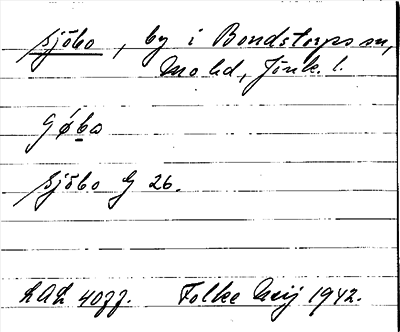 Sjöbo, by i Bondstorps sn,
Mo hd, Jönk. l.
Sjöbo G 26.
Folke Meij 1942.